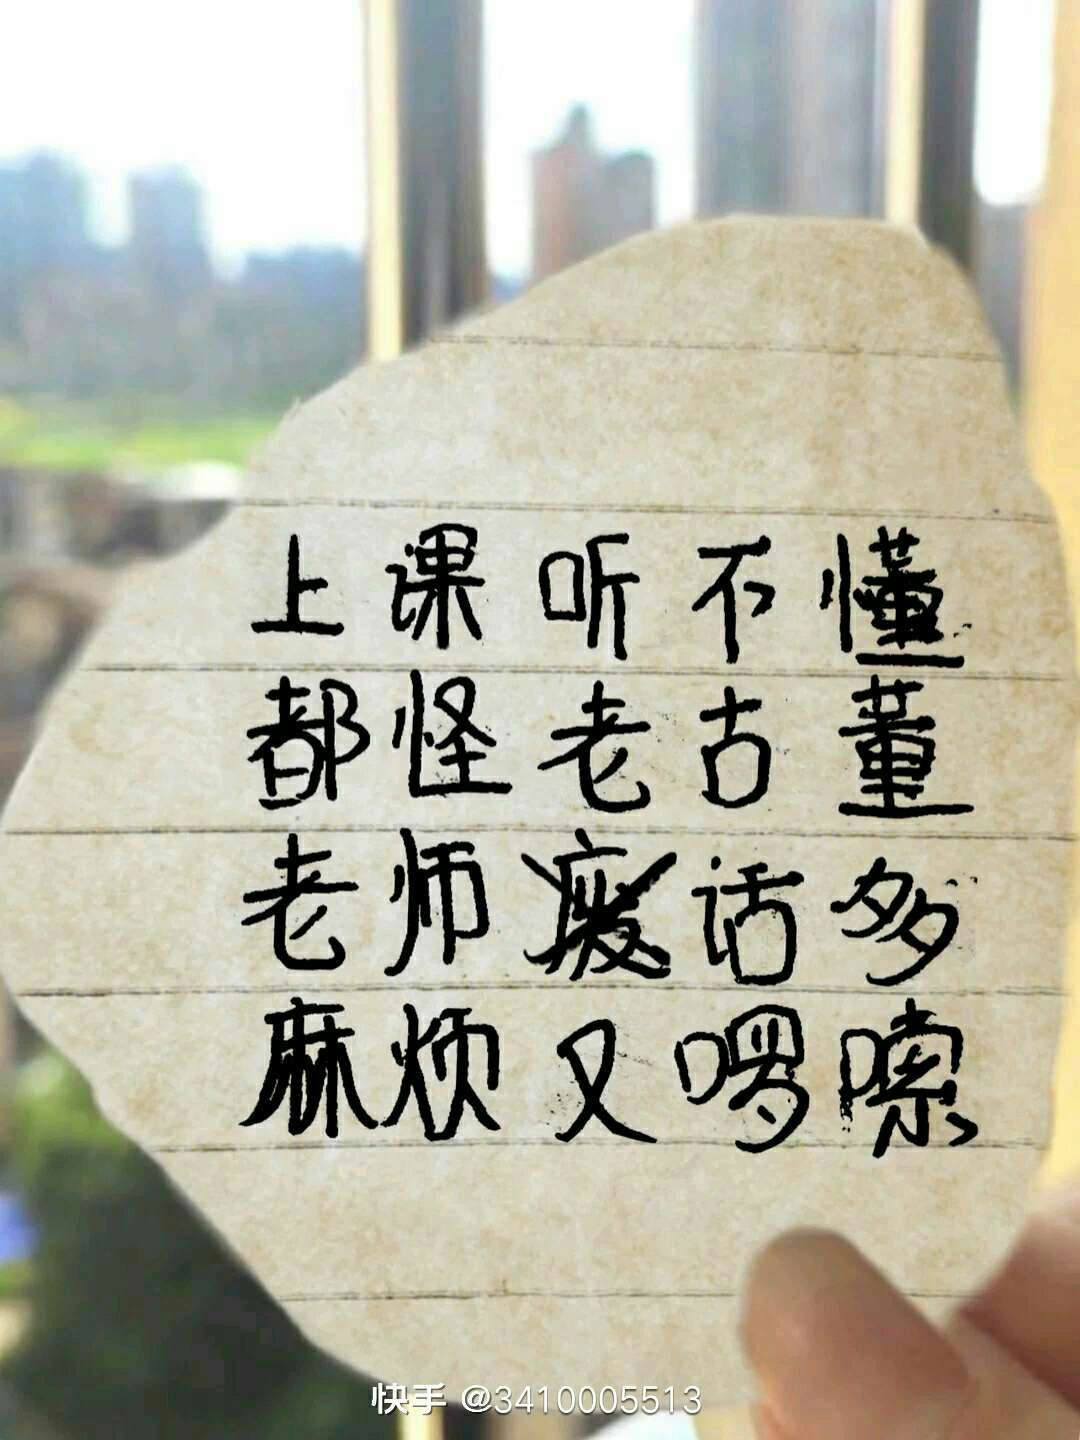 上课听不懂
都怪老古董
老师废话多
麻烦又啰嗦
快手 @3410005513